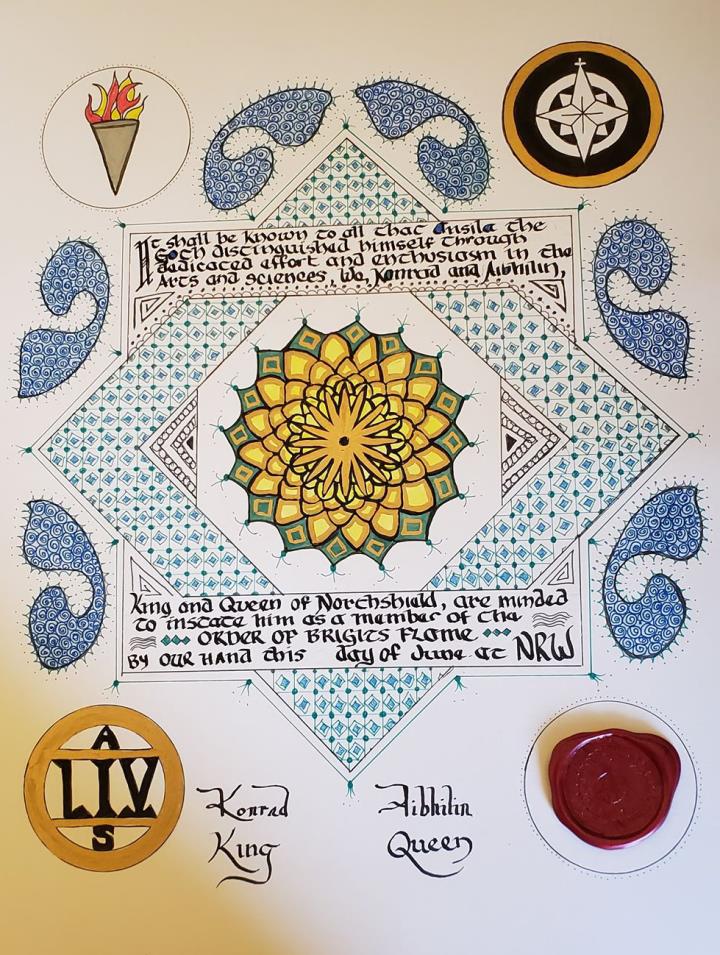 It shall be known to all that Ansila the
Goth distinguished himself through
dedicated effort and enthusiasm in the
Arts and Sciences, We, Konrad and Aibhilin,
King and Queen of Northshield, are minded
to instate him as a member of the
ORDER OF BRIGITS FLAME
BY OUR HAND this day of June at NRW
A
LIV
S
Konrad
King
Aibhilin
Queen